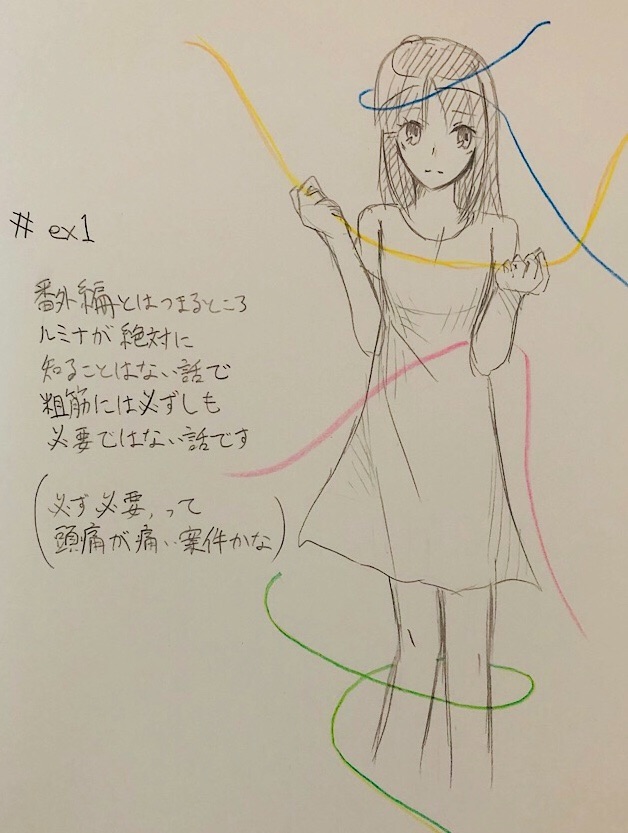 # ex1
番外編とはつまるところ
ルミナが絶対に
知ることはない話で
粗筋には必ずしも
必要ではない話です
(必ず必要、って
頭痛が痛い案件かな)